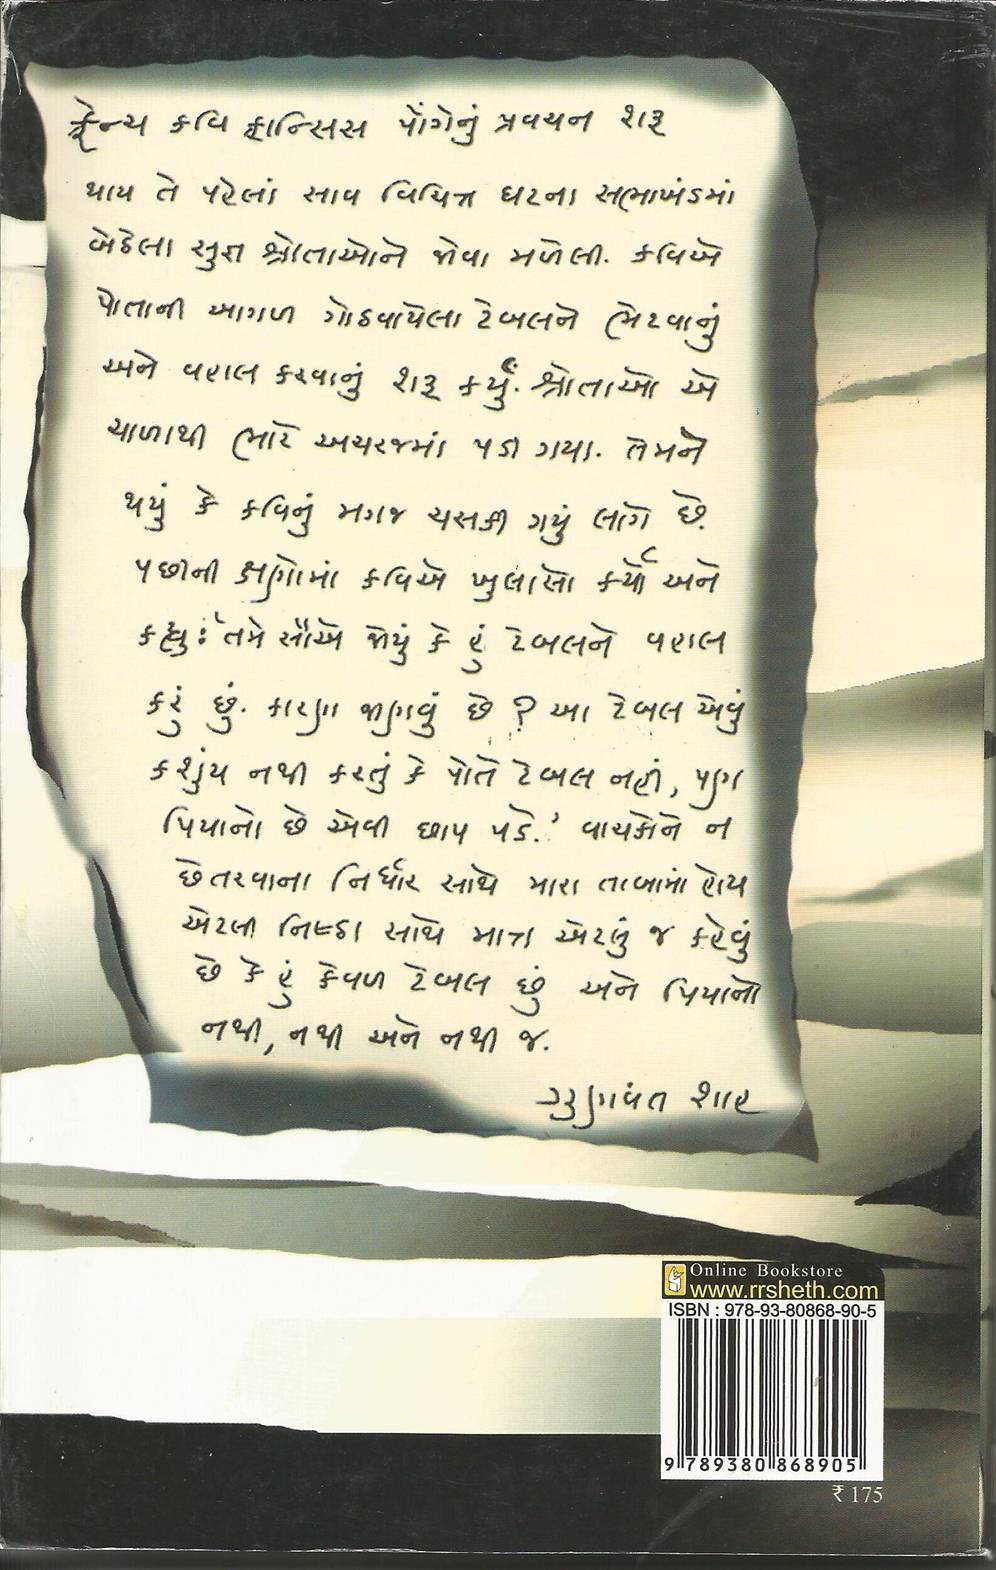 ફ્રેન્ચ કવિ ફ્રાન્સિસ પોંગેનું પ્રવચન શરૂ
થાય તે પહેલાં સાવ વિચિત્ર ઘટના સભાખંડમાં
બેઠેલા સુજ્ઞ શ્રોતાઓને જોવા મળેલી. કવિએ
પોતાની આગળ ગોઠવાયેલા ટેબલને ભેટવાનું
અને વહાલ કરવાનું શરૂ કર્યું. શ્રોતાઓ એ
ચાળાથી ભારે અચરજમાં પડી ગયા. તેમને
થયું કે કવિનું મગજ ચસકી ગયું લાગે છે.
પછીની ક્ષણોમાં કવિએ ખુલાસો કર્યો અને
કહ્યું: 'તમે સૌએ જોયું કે હું ટેબલને વહાલ
કરું છું. કારણ જાણવું છે ? આ ટેબલ એવું
કશુંય નથી કરતું કે પોતે ટેબલ નહીં, પણ
પિયાનો છે એવી છાપ પડે.' વાચકોને ન
છેતરવાના નિર્ધાર સાથે મારા તાબામાં હોય
એટલી નિષ્ઠા સાથે માત્ર એટલું જ કહેવું
છે કે હું કેવળ ટેબલ છું અને પિયાનો
નથી, નથી અને નથી જ.
ગુણવંત શાહ
Online Bookstore
www.rrsheth.com
ISBN : 978-93-80868-90-5
9 789380 868905
₹ 175